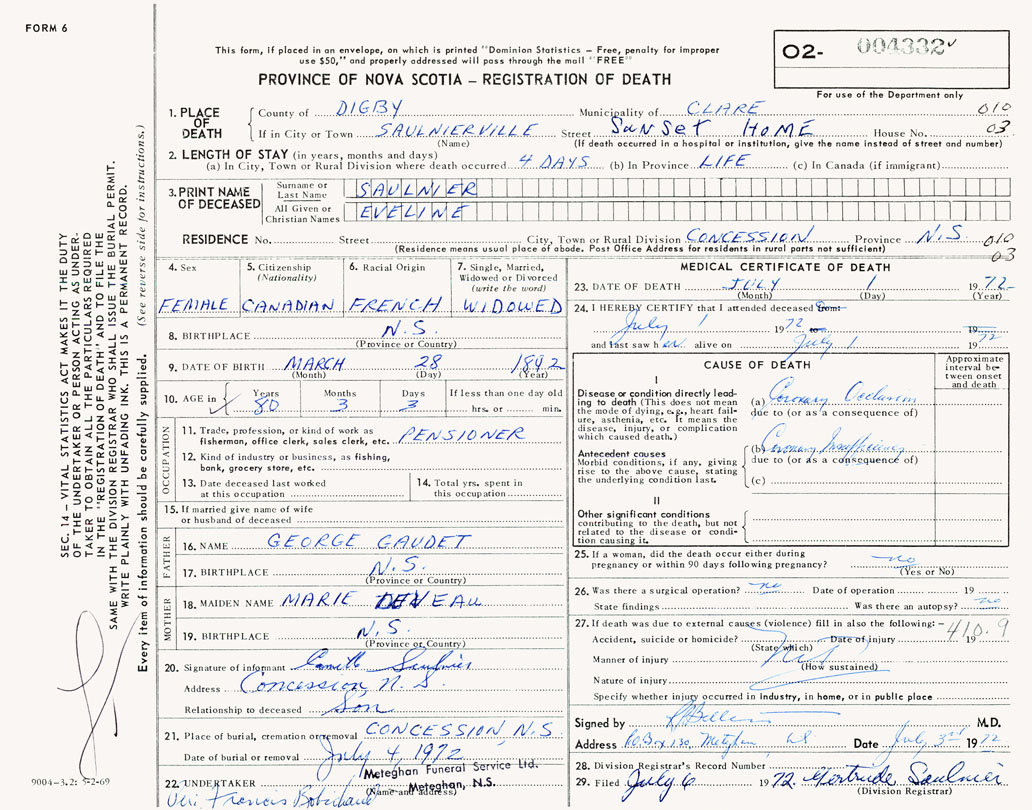 FORM 6
This form, if placed in an envelope, on which is printed "Dominion Statistics – Free, penalty for improper
use $50," and properly addressed will pass through the mail "FREE"
PROVINCE OF NOVA SCOTIA – REGISTRATION OF DEATH
02- 004332
For use of the Department only
SEC. 14 – VITAL STATISTICS ACT MAKES IT THE DUTY
OF THE UNDERTAKER OR PERSON ACTING AS UNDER-
TAKER TO OBTAIN ALL THE PARTICULARS REQUIRED
IN THE "REGISTRATION OF DEATH" AND TO FILE THE
SAME WITH THE DIVISION REGISTRAR WHO SHALL ISSUE THE BURIAL PERMIT.
WRITE PLAINLY WITH UNFADING INK. THIS IS A PERMANENT RECORD.
Every item of information should be carefully supplied. (See reverse side for instructions.)
9004–3.2: 5-2-69
1. PLACE OF DEATH
County of DIGBY Municipality of CLARE 010
If in City or Town SAULNIERVILLE Street SunSet HOME House No. 03
(Name) (If death occurred in a hospital or institution, give the name instead of street and number)
2. LENGTH OF STAY (in years, months and days)
(a) In City, Town or Rural Division where death occurred 4 DAYS (b) In Province LIFE (c) In Canada (if immigrant)
3. PRINT NAME OF DECEASED
Surname or Last Name SAULNIER
All Given or Christian Names EVELINE
RESIDENCE No. Street City, Town or Rural Division CONCESSION Province N.S. 010
(Residence means usual place of abode. Post Office Address for residents in rural parts not sufficient) 03
4. Sex FEMALE
5. Citizenship (Nationality) CANADIAN
6. Racial Origin FRENCH
7. Single, Married, Widowed or Divorced (write the word) WIDOWED
8. BIRTHPLACE N.S.
(Province or Country)
9. DATE OF BIRTH MARCH 28 1892
(Month) (Day) (Year)
10. AGE in Years 80 Months 3 Days 3 If less than one day old
hrs. or min.
OCCUPATION
11. Trade, profession, or kind of work as
fisherman, office clerk, sales clerk, etc. PENSIONER
12. Kind of industry or business, as fishing,
bank, grocery store, etc.
13. Date deceased last worked
at this occupation
14. Total yrs. spent in
this occupation
15. If married give name of wife
or husband of deceased
FATHER
16. NAME GEORGE GAUDET
17. BIRTHPLACE N.S.
(Province or Country)
MOTHER
18. MAIDEN NAME MARIE DEVEAU
19. BIRTHPLACE N.S.
(Province or Country)
20. Signature of informant Camille Saulnier
Address Concession, N.S.
Relationship to deceased Son
21. Place of burial, cremation or removal CONCESSION, N.S
Date of burial or removal July 4, 1972
22. UNDERTAKER Meteghan Funeral Service Ltd.
(Name and address) Meteghan, N.S.
Francis Robichaud
MEDICAL CERTIFICATE OF DEATH
23. DATE OF DEATH JULY 1 1972
(Month) (Day) (Year)
24. I HEREBY CERTIFY that I attended deceased from:
July 1 1972 to 19
and last saw her alive on July 1 1972
CAUSE OF DEATH
Approximate interval be- tween onset and death
I
Disease or condition directly lead-
ing to death (This does not mean
the mode of dying, e.g., heart fail-
ure, asthenia, etc. It means the
disease, injury, or complication
which caused death.)
(a) Coronary Occlusion
due to (or as a consequence of)
Antecedent causes
Morbid conditions, if any, giving
rise to the above cause, stating
the underlying condition last.
(b) Coronary Insufficiency
due to (or as a consequence of)
(c)
II
Other significant conditions
contributing to the death, but not
related to the disease or condi-
tion causing it.
25. If a woman, did the death occur either during
pregnancy or within 90 days following pregnancy? no
(Yes or No)
26. Was there a surgical operation? no Date of operation 19
State findings Was there an autopsy? no
27. If death was due to external causes (violence) fill in also the following: – 410.9
Accident, suicide or homicide? Date of injury 19
(State which)
Manner of injury
(How sustained)
Nature of injury
Specify whether injury occurred in industry, in home, or in public place
Signed by M.D.
Address P.O. Box 130, Meteghan Date July 3rd 1972
28. Division Registrar's Record Number
29. Filed July 6 1972 Gertrude Saulnier
(Division Registrar)